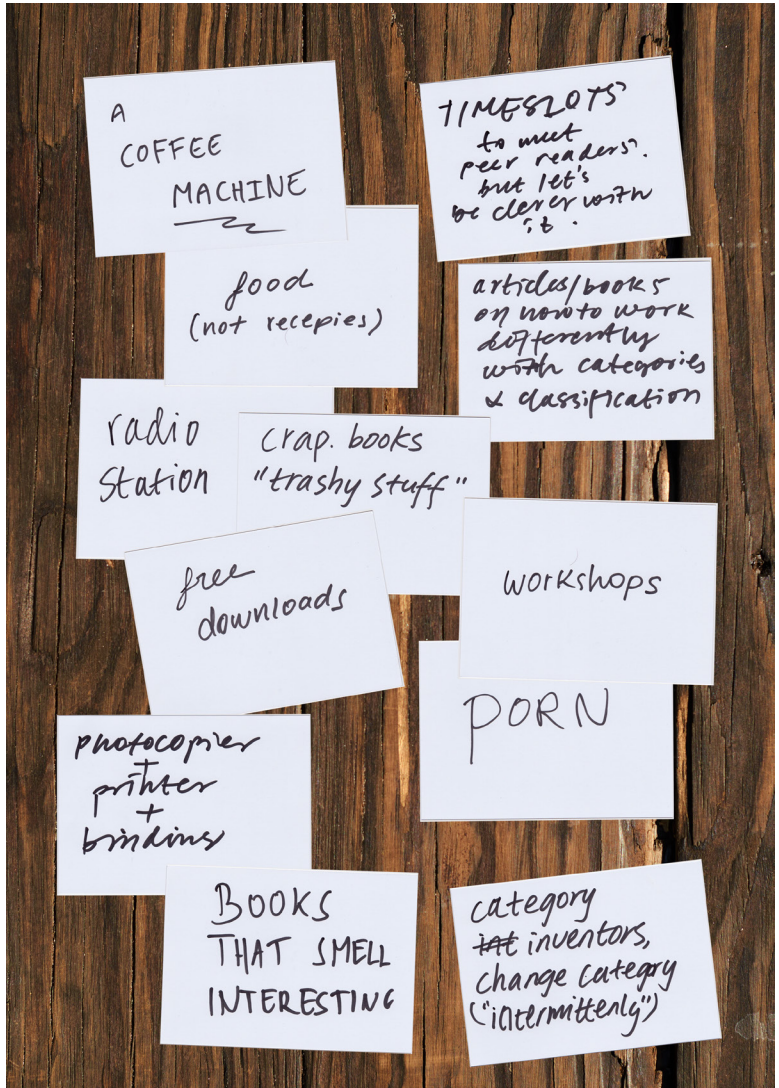 A
COFFEE
MACHINE
TIMESLOTS
to meet
peer readers.
but let's
be clever with
it.
food
(not recepies)
articles/books
on how to work
differently
with categories
& classification
radio
Station
crap. books
"trashy stuff"
free
downloads
workshops
PORN
photocopier
+
printer
+
binding
BOOKS
THAT SMELL
INTERESTING
category
int inventors,
change category
("intermittenly")